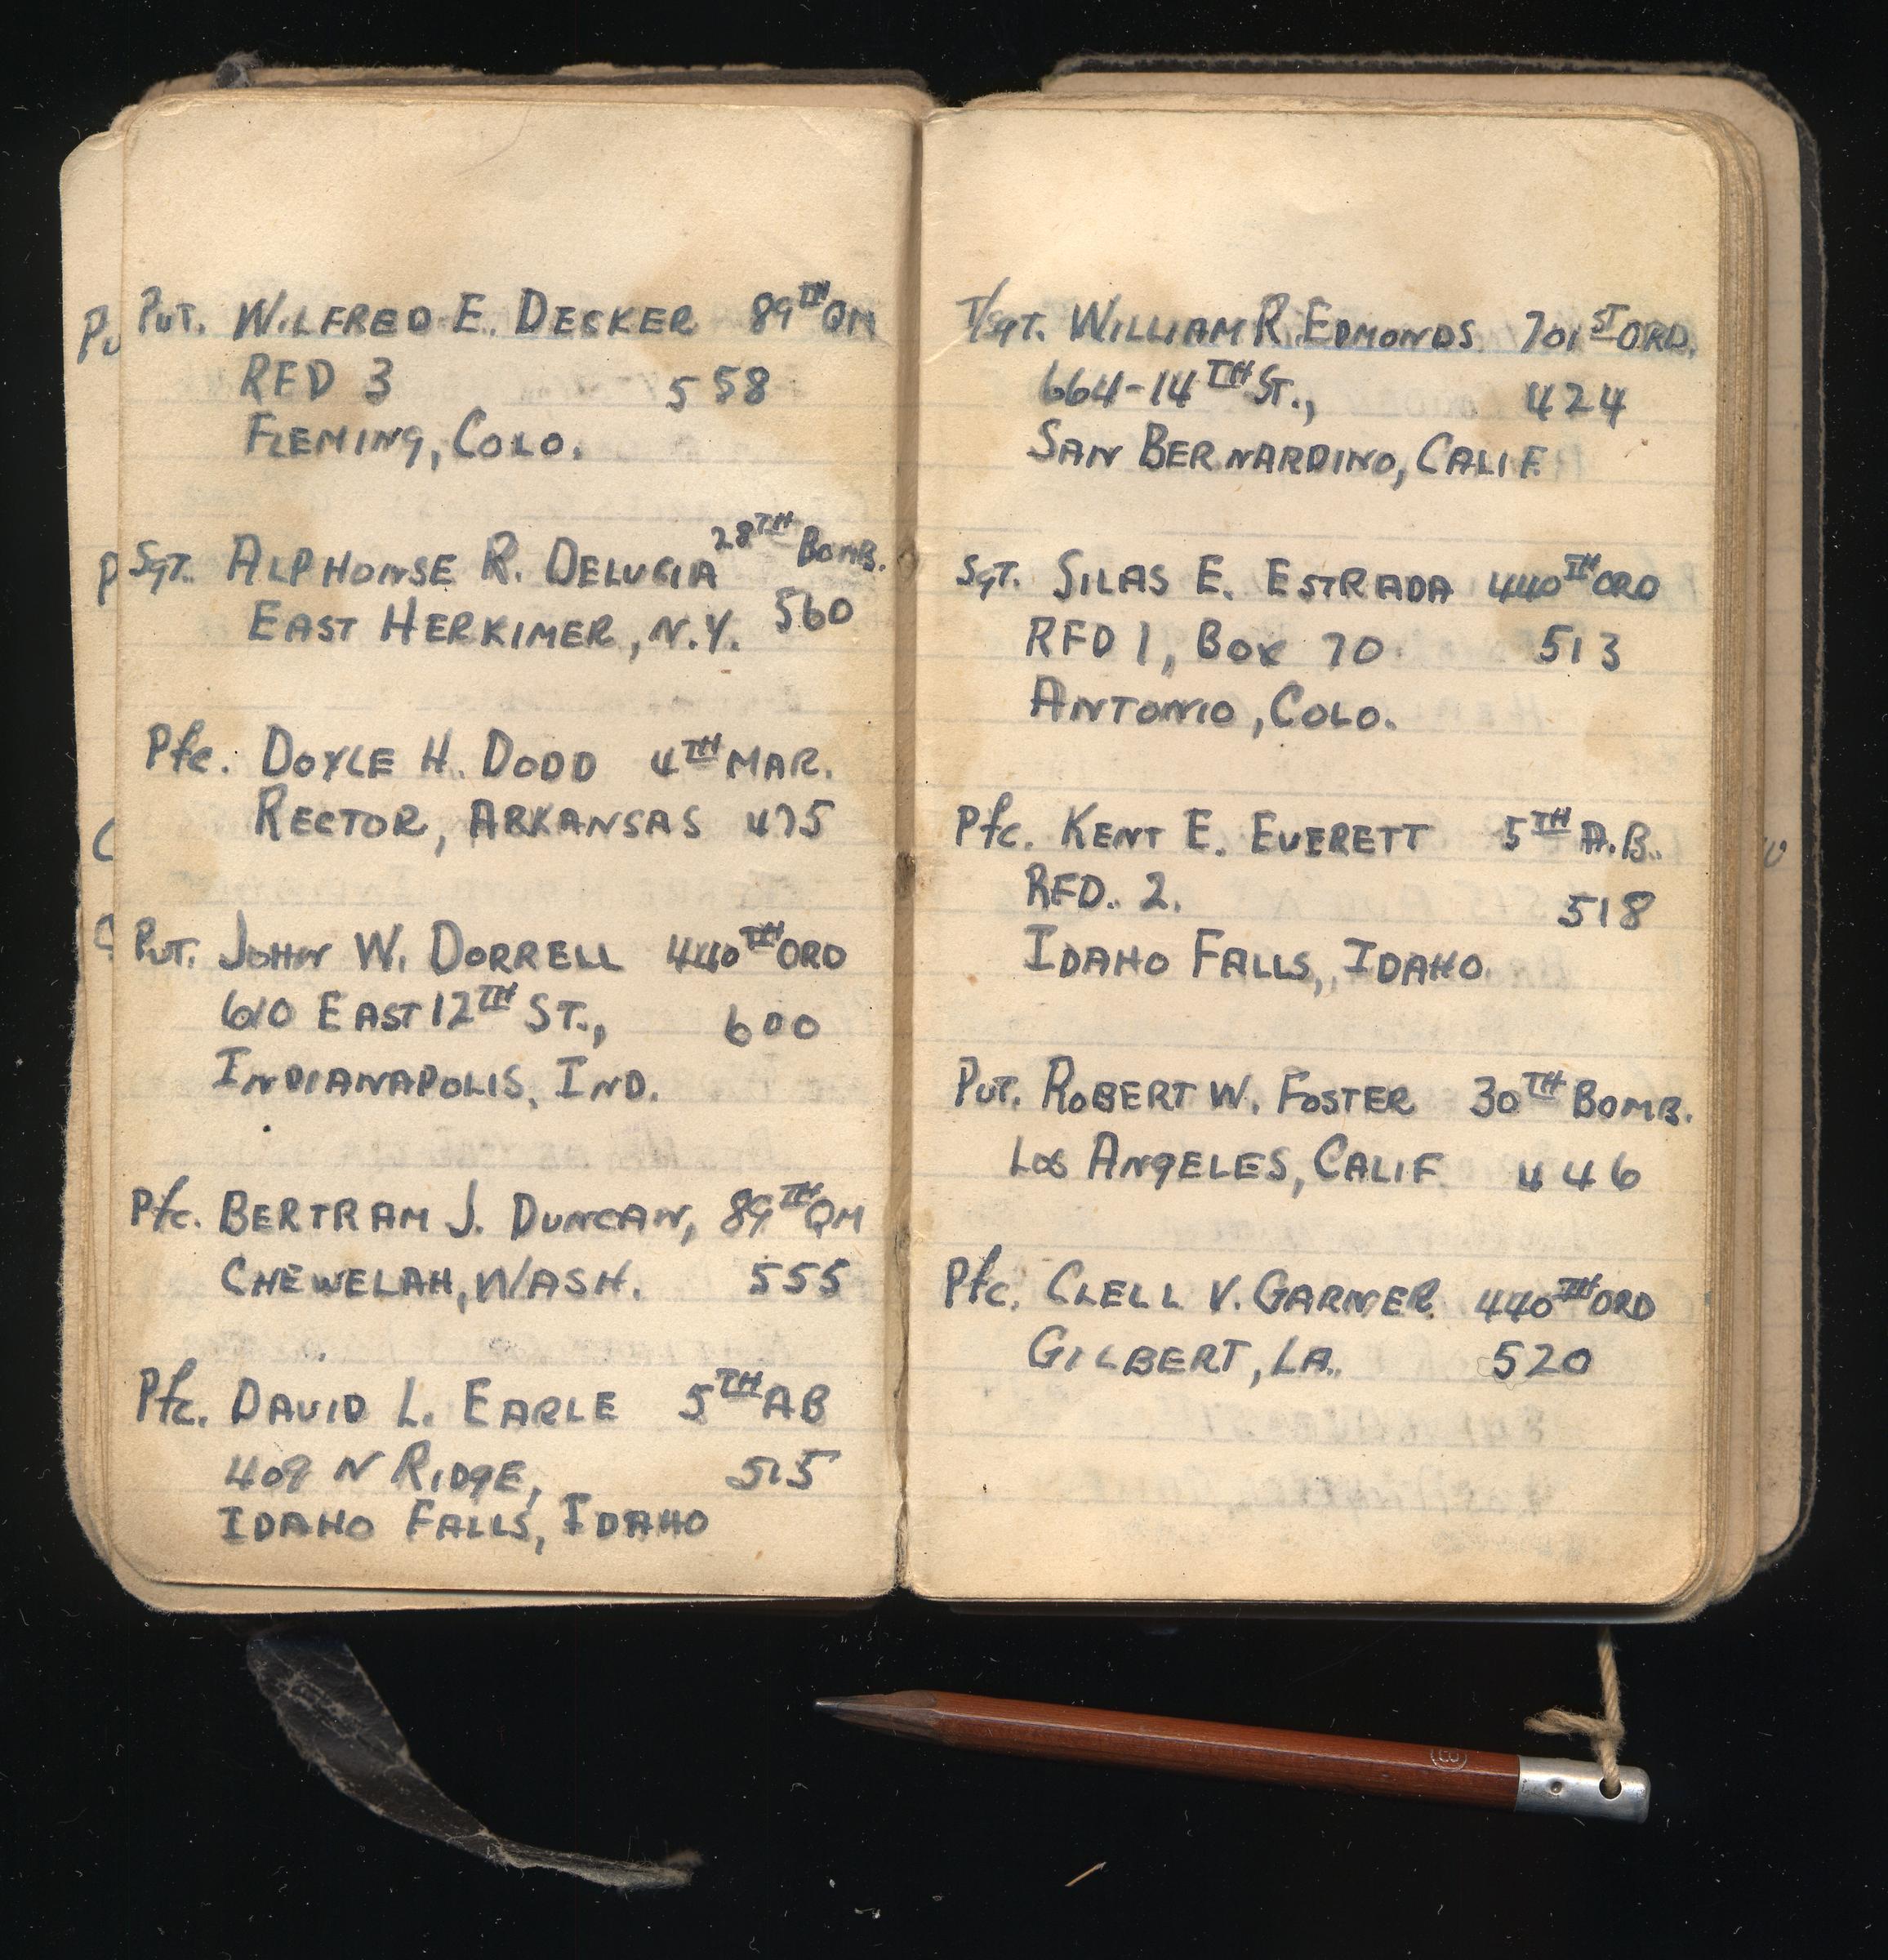 Pvt. Wilfred E. Decker 89TH QM
RFD 3 558
Fleming, Colo.
Sgt. Alphonse R. Delucia 28TH Bomb.
East Herkimer, N.Y. 560
Pfc. Doyle H. Dodd 4TH Mar.
Rector, Arkansas 475
Pvt. John W. Dorrell 440TH Ord
610 East 12TH St.,  600
Indianapolis, Ind.
Pfc. Bertram J. Duncan, 89TH QM
Chewelah, Wash. 555
Pfc. David L. Earle 5TH AB
409 N Ridge, 515
Idaho Falls, Idaho
T/Sgt. William R. Edmonds 701ST Ord.
664-14TH St., 424
San Bernardino, Calif
Sgt. Silas E. Estrada 440TH Ord
RFD 1, Box 70 513
Antonio, Colo.
Pfc. Kent E. Everett 5TH A.B.
RFD. 2. 518
Idaho Falls, Idaho.
Pvt. Robert W. Foster 30TH Bomb.
Los Angeles, Calif 446
Pfc. Clell V. Garner 440TH Ord
Gilbert, La. 520